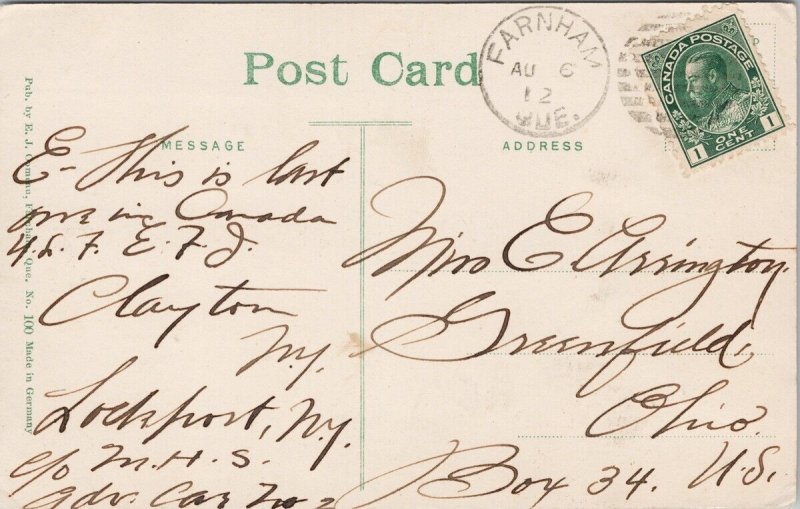 Post Card
FARNHAM
AU 6
12
QUE.
CANADA POSTAGE
1 ONE CENT 1
MESSAGE
ADDRESS
E- This is last
one in Canada
Clayton
N.Y.
Lockport, N.Y.
c/o M.H.S.
Adv. Car No 2
Miss E Arrington
Greenfield,
Ohio.
Box 34. U.S.
Pub. by E. J. Farnham, Que. No. 100 Made in Germany